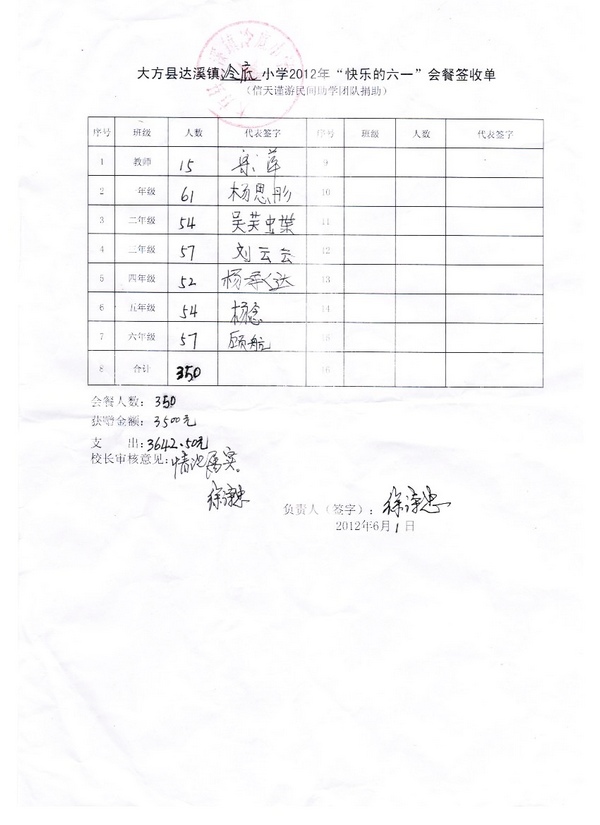 大方县达溪镇冷底小学2012年“快乐的六一”会餐签收单
（信天谨游民间助学团队捐助）
序号 班级 人数 代表签字 序号 班级 人数 代表签字
1 教师 15 9
2 一年级 61 杨思彤 10
3 二年级 54 11
4 三年级 57 刘云云 12
5 四年级 52 杨承达 13
6 五年级 54 杨念 14
7 六年级 57 顾航 15
8 合计 350 16
会餐人数：350
获赠金额：3500元
支 出：3642.50元
校长审核意见：情况属实。
负责人（签字）：
2012年6月1日